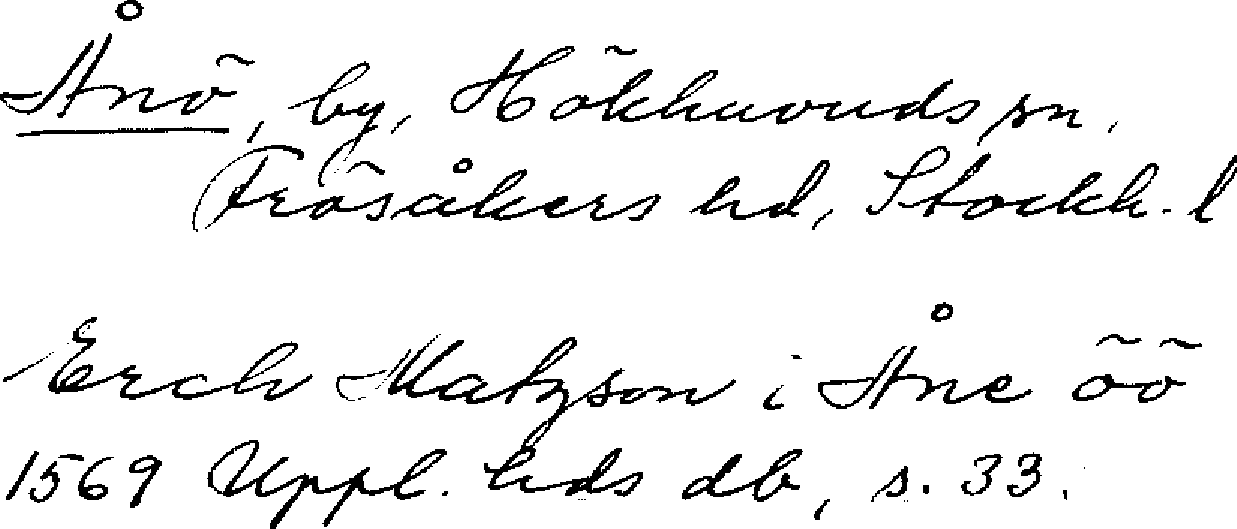 Ånö, by, Hökhuvuds sn,
Frösåkers hd, Stockh. l
Erch Matzson i Åne öö
1569 Uppl. hds db, s. 33.